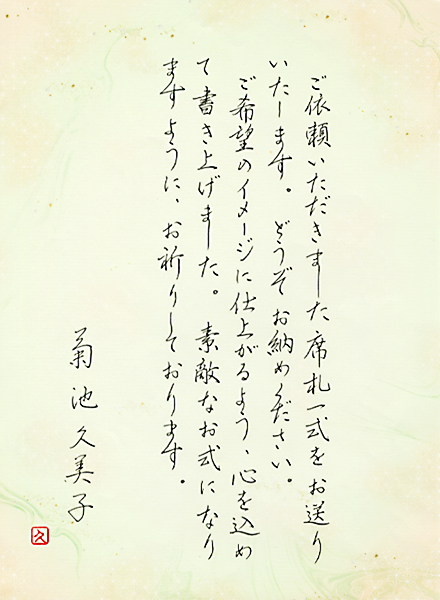 ご依頼いただきました席札一式をお送り
いたします。どうぞお納めください。
ご希望のイメージに仕上がるよう、心を込め
て書き上げました。素敵なお式になり
ますように、お祈りしております。
菊池久美子
久